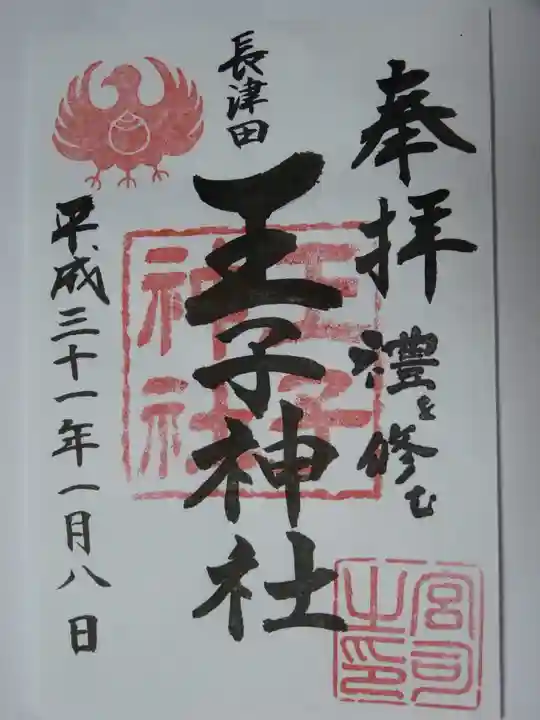 奉拝
澧を修む
長津田
王子神社
王子神社
平成三十一年一月八日
宮司之印